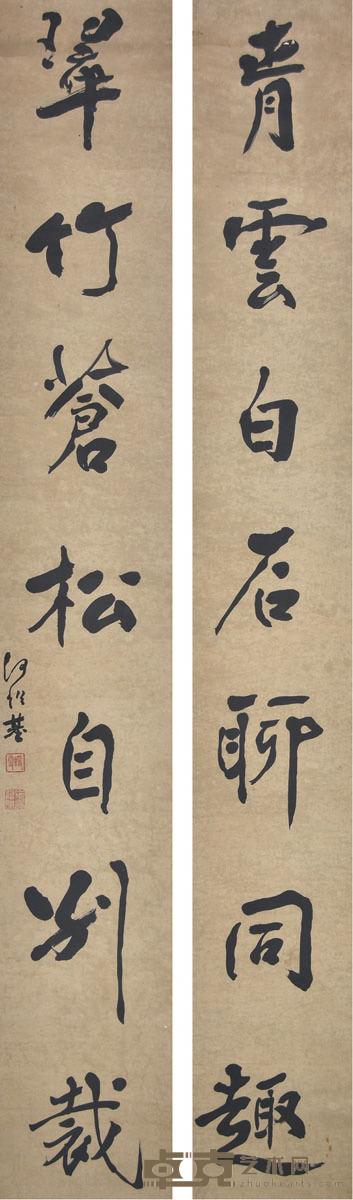 青雲白石聊同趣
翠竹蒼松自別裁
何紹基
卓克艺术网
www.zhuokearts.com